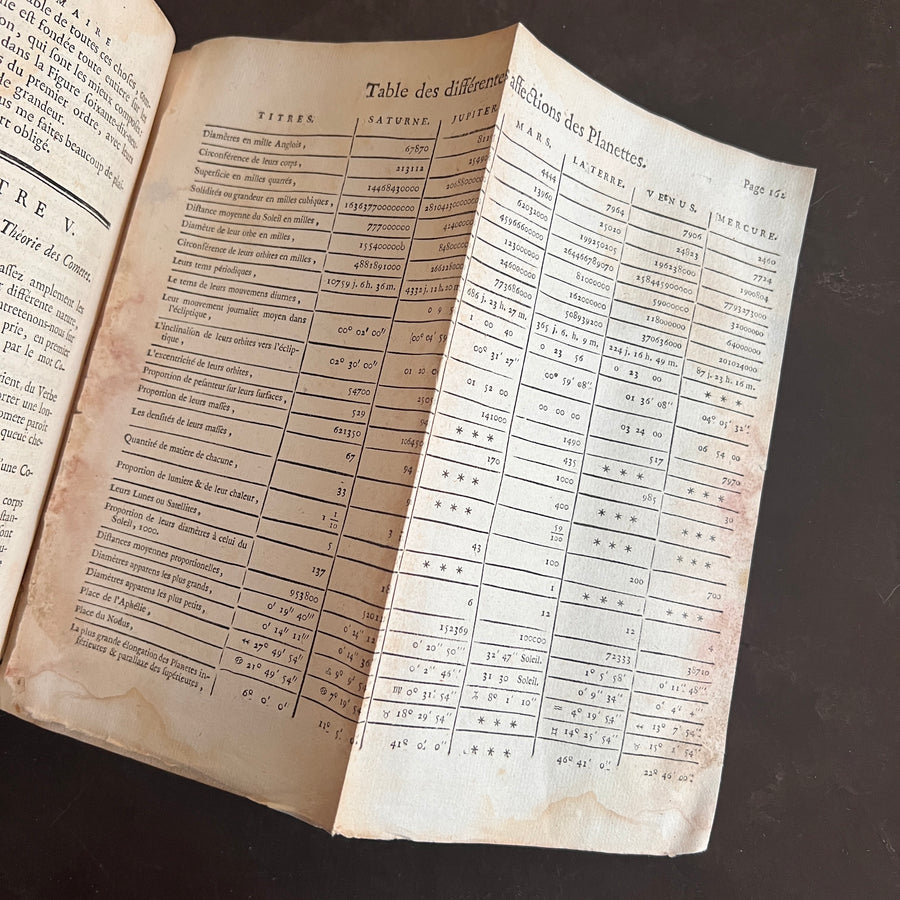 MAIRE
able de toutes ces choses, sem-
le est fondée toute entiere sur les
on, qui sont les mieux composés;
dans la Figure soixante-dix-neu-
s du premier ordre, avec leurs
de grandeur.
us me faites beaucoup de plai-
rt obligé.
TRE V.
Théorie des Cometes.
assez amplement les
différente nature,
ntretenons-nous sur
prie, en premier
par le mot Co-
rient, du Verbe
orter une lon-
omete paroît
queuë che-
'une Co-
corps
stan-
sont
Table des différentes affections des Planettes.
Page 162
TITRES. SATURNE. JUPITER MARS. LA TERRE. VENUS. MERCURE.
Diamétres en mille Anglois, 67870 811 4444 7964 7906 2460
Circonférence de leurs corps, 213112 25490 13960 25020 24823 7724
Superficie en milles quarrés, 14468430000 62032000 199250205 196238000 1900804
Solidités ou grandeur en milles cubiques, 163637700000000 45966600000 264466789070 258445900000 7793273000
Distance moyenne du Soleil en milles, 777000000 123000000 81000000 59000000 32000000
Diametre de leur orbe en milles, 1554000000 84800 246000000 162000000 118000000 64000000
Circonférence de leurs orbites en milles, 4881891000 773686000 508939200 370636000 201024000
Leurs tems périodiques, 10759 j. 6h. 36m. 4332 j. 12 h. 20 m 686 j. 23 h. 27 m. 365 j. 6 h. 9 m. 224 j. 16 h. 49 m. 87 j. 23 h. 16 m.
Le tems de leurs mouvemens diurnes, 0 9 5 1 00 40 0 23 56 0 23 00 * * *
Leur mouvement journalier moyen dans
l'écliptique, 00° 02' 00'' 00° 04' 59 00° 31' 27'' 00° 59' 08'' 01 36' 08'' 04° 05' 32''
L'inclinaison de leurs orbites vers l'éclip-
tique, 02° 30' 00'' 01 20 01 52 00 00 00 00 03 24 00 06 54 00
L'excenticité de leurs orbites, 54700 250 141000 1490 517 7970
Proportion de pesanteur sur leurs surfaces, 529 94 * * * 435 * * * * * *
Proportion de leurs masses, 621350 170 1000 985 30
Les densités de leurs masses, 67 94 * * * 400 * * * * * *
Quantité de matiere de chacune, 33 * * * 59/100 * * * * * *
Proportion de lumiere & de leur chaleur, 1 1/10 3 43 100 200 700
Leurs Lunes ou Satellites, 5 * * * 1 * * * * * *
Proportion de leurs diamètres à celui du
Soleil, 1000. 137 6 12 12 4
Distances moyennes proportionelles, 953800 5201 152369 100000 72333 38710
Diamétres apparens les plus grands, 0' 19'' 40''' 0' 24'' 12 0' 20'' 50''' 32' 47'' Soleil. 1° 5' 58' 0' 11'' 48''
Diamétres apparens les plus petits, 0' 14'' 11''' 0' 14'' 36 0' 2'' 46''' 31 30 Soleil. 0' 9'' 34'' 0' 4'' 4''
Place de l'Aphélie, ♐ 27° 49' 54'' ♎ 9° 9' 5 ♍ 0° 31' 54'' ♑ 8° 1' 10'' ♒ 4° 19' 54'' ♐ 13° 7' 54''
Place du Nodus, ♋ 21° 49' 54'' ♋ 7° 9' 54 ♉ 18° 29' 54'' * * * ♊ 14° 25' 54'' ♉ 15° 1' 54''
La plus grande élongation des Planetes in-
férieures & parallaxe des supérieures, 6° 0' 0'' 11° 5' 0' 41° 0' 0'' * * * 46° 41' 0'' 22° 46' 00''